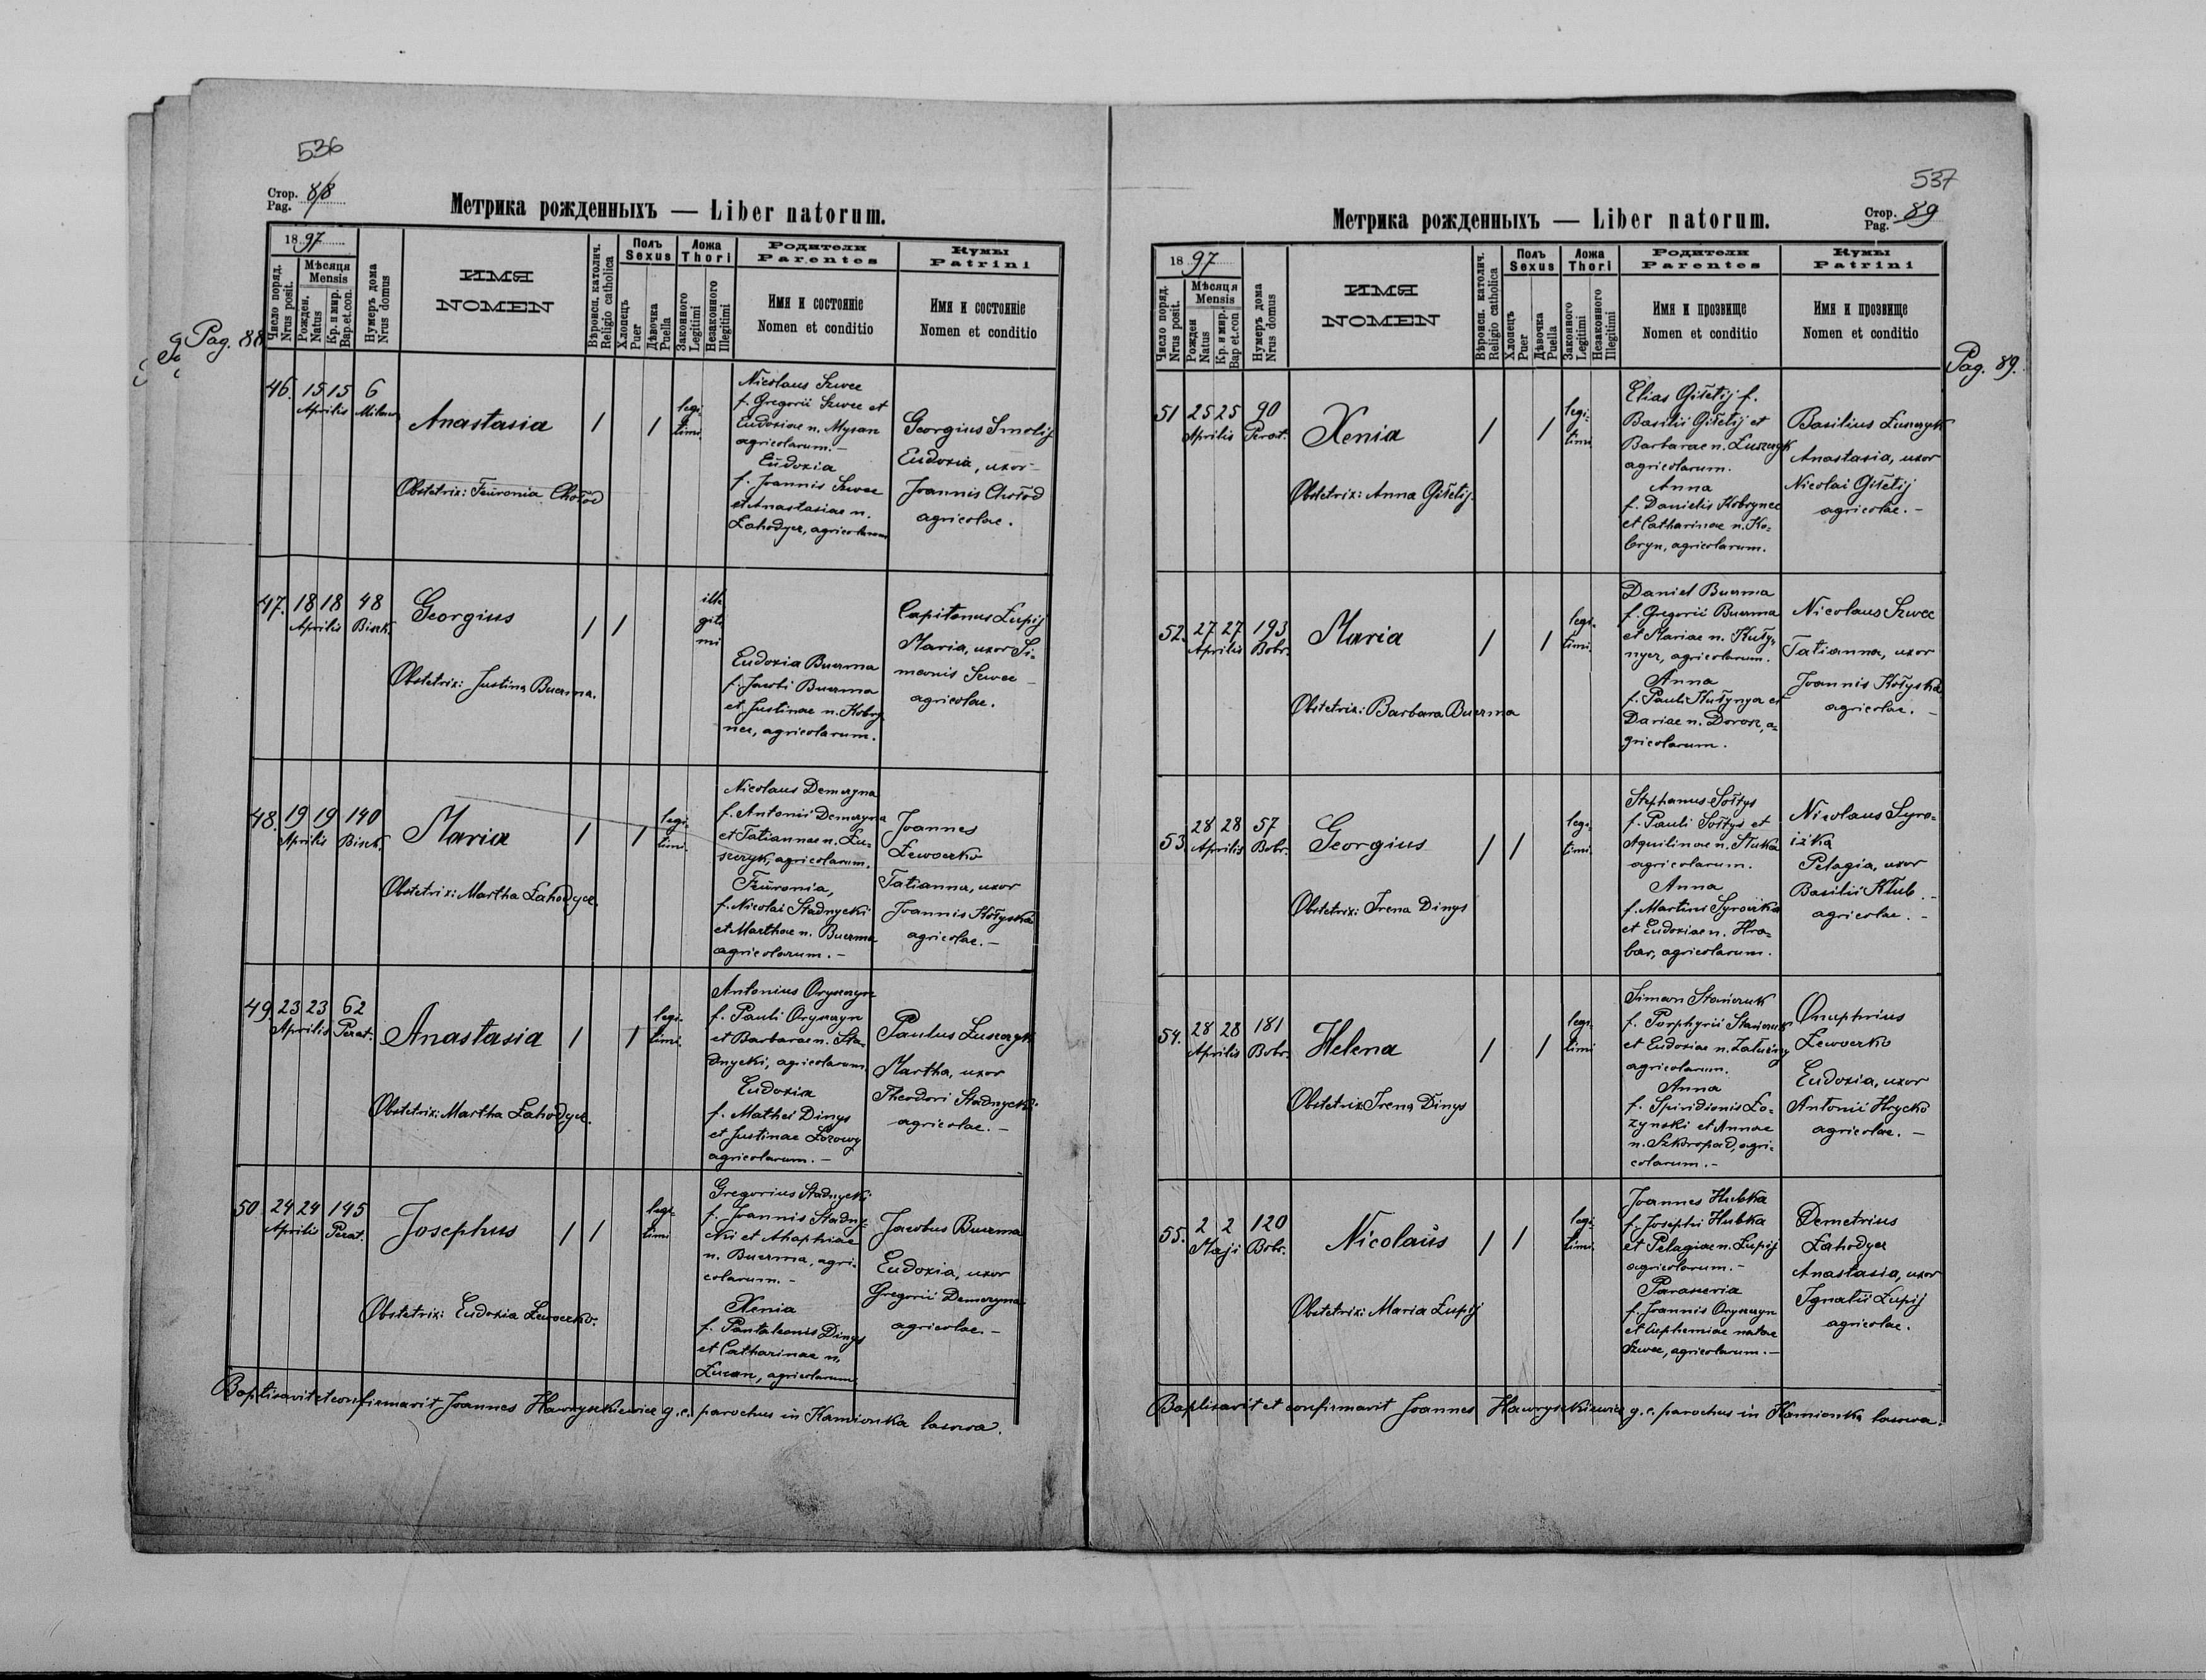 536
Стор. 88
Pag.
Метрика рожденныхъ — Liber natorum.
Pag. 88
1897
Число поряд.
Nrus posit.
Мѣсяця
Mensis
Рожден.
Natus
Кр. и мир.
Bap.et.con.
Нумеръ дома
Nrus domus
ИМЯ
NOMEN
Вѣроисп. католич.
Religio catholica
Полъ
Sexus
Хлопецъ
Puer
Дѣвочка
Puella
Ложа
Thori
Законного
Legitimi
Незаконного
Illegitimi
Родители
Parentes
Имя и состояніе
Nomen et conditio
Кумы
Patrini
Имя и состояніе
Nomen et conditio
46. 15 15 6
Aprilis
Anastasia
/ /
legi-
timi.
Obstetrix: Feuronia Chołod
Nicolaus Szwec
f. Gregorii Szwec et
Eudoxiae n. Mysan
agricolarum.-
Eudoxia
f. Joannis Szwec
et Anastasiae n.
Łahodycz, agricolarum
Georgius Smolij
Eudoxia, uxor
Joannis Chołod
agricolae.
47. 18 18 48
Aprilis Bisch.
Georgius
/ /
ille
giti
mi
Obstetrix: Justina Buczma.
Eudoxia Buczma
f. Jacobi Buczma
et Justinae n. Kobry
nec, agricolarum.
Capitonus Łupij
Maria, uxor Si-
meonis Szwec
agricolae.
48. 19 19 140
Aprilis Bisch.
Maria
/ /
legi-
timi.
Obstetrix: Martha Łahodycz.
Nicolaus Demczyna
f. Antonii Demczyna
et Tatiannae n. Łu-
szczyk, agricolarum.
Feuronia,
f. Nicolai Stadnycki
et Marthae n. Buczma
agricolarum.-
Joannes
Lewoczko
Tatianna, uxor
Joannis Kołyska
agricolae.-
49. 23 23 62
Aprilis Perat.
Anastasia
/ /
legi-
timi.
Obstetrix: Martha Łahodycz.
Antonius Oryszczyn
f. Pauli Oryszczyn
et Barbarae n. Sta-
dnycki, agricolarum.
Eudoxia
f. Mathei Dinys
et Justinae Łozowy
agricolarum.-
Paulus Łuszczyk
Martha, uxor
Theodori Stadnycki
agricolae.-
50 24 24 145
Aprilis Perat.
Josephus
/ /
legi-
timi
Obstetrix: Eudoxia Lewoczko.
Gregorius Stadnycki
f. Joannis Stadny-
cki et Ahaphiae
n. Buczma, agri-
colarum.-
Xenia
f. Pantaleonis Dinys
et Catharinae n.
agricolarum.
Jacobus Buczma
Eudoxia, uxor
Gregorii Demczyna
agricolae.-
Baptisavit et confirmavit Joannes Hawryszkiewicz g. c. parochus in Kamionka lasowa.
537
Метрика рожденныхъ — Liber natorum.
Стор. 89
Pag.
Pag. 89.
1897
Число поряд.
Nrus posit.
Мѣсяця
Mensis
Рожден
Natus
Кр. и мир.
Bap et.con
Нумеръ дома
Nrus domus
ИМЯ
NOMEN
Вѣроисп. католич.
Religio catholica
Полъ
Sexus
Хлопецъ
Puer
Дѣвочка
Puella
Ложа
Thori
Законного
Legitimi
Незаконного
Illegitimi
Родители
Parentes
Имя и прозвище
Nomen et conditio
Кумы
Patrini
Имя и прозвище
Nomen et conditio
51 25 25 90
Aprilis Perat.
Xenia
/ /
legi-
timi
Obstetrix: Anna Giłetij.
Elias Giłetij f.
Basilii Giłetij et
Barbarae n. Łuszczyk
agricolarum.
Anna
f. Danielis Kobrynec
et Catharinae n. Ko-
bryn, agricolarum.
Basilius Łuszczyk
Anastasia, uxor
Nicolai Giłetij
agricolae.-
52. 27 27 193
Aprilis Bobr.
Maria
/ /
legi-
timi.
Obstetrix: Barbara Buczma
Daniel Buczma
f. Gregorii Buczma
et Mariae n. Kuły-
nycz, agricolarum.
Anna
f. Pauli Kułynycz et
Dariae n. Dorosz, a-
gricolarum.
Nicolaus Szwec
Tatianna, uxor
Joannis Kołyska
agricolae.-
53 28 28 57
Aprilis Bobr.
Georgius
/ /
legi-
timi.
Obstetrix: Irena Dinys
Stephanus Sołtys
f. Pauli Sołtys et
Aquilinae n. Stuka
agricolarum.
Anna
f. Martini Syroiżka
et Eudoxiae n. Hra-
bar, agricolarum.
Nicolaus Syro-
iżka
Pelagia, uxor
Basilii Kłub
agricolae.-
54. 28 28 181
Aprilis Bobr.
Helena
/ /
legi-
timi
Obstetrix: Irena Dinys
Simeon Stańczuk
f. Porphyrii Stańczuk
et Eudoxiae n. Załużny
agricolarum.
Anna
f. Spiridionis Ło-
zynski et Annae
n. Szkoropad, agri-
colarum.-
Onuphrius
Lewoczko
Eudoxia, uxor
Antonii Hrycko
agricolae.-
55. 2 2 120
Maji Bobr.
Nicolaus
/ /
legi-
timi.
Obstetrix: Maria Łupij
Joannes Hubka
f. Josephi Hubka
et Pelagiae n. Łupij
agricolarum.-
Parascevia
f. Joannis Oryszczyn
et Euphemiae natae
Szwec, agricolarum.-
Demetrius
Łahodycz
Anastasia, uxor
Ignatii Łupij
agricolae.
Baptisavit et confirmavit Joannes Hawryszkiewicz g. c. parochus in Kamionka lasowa.